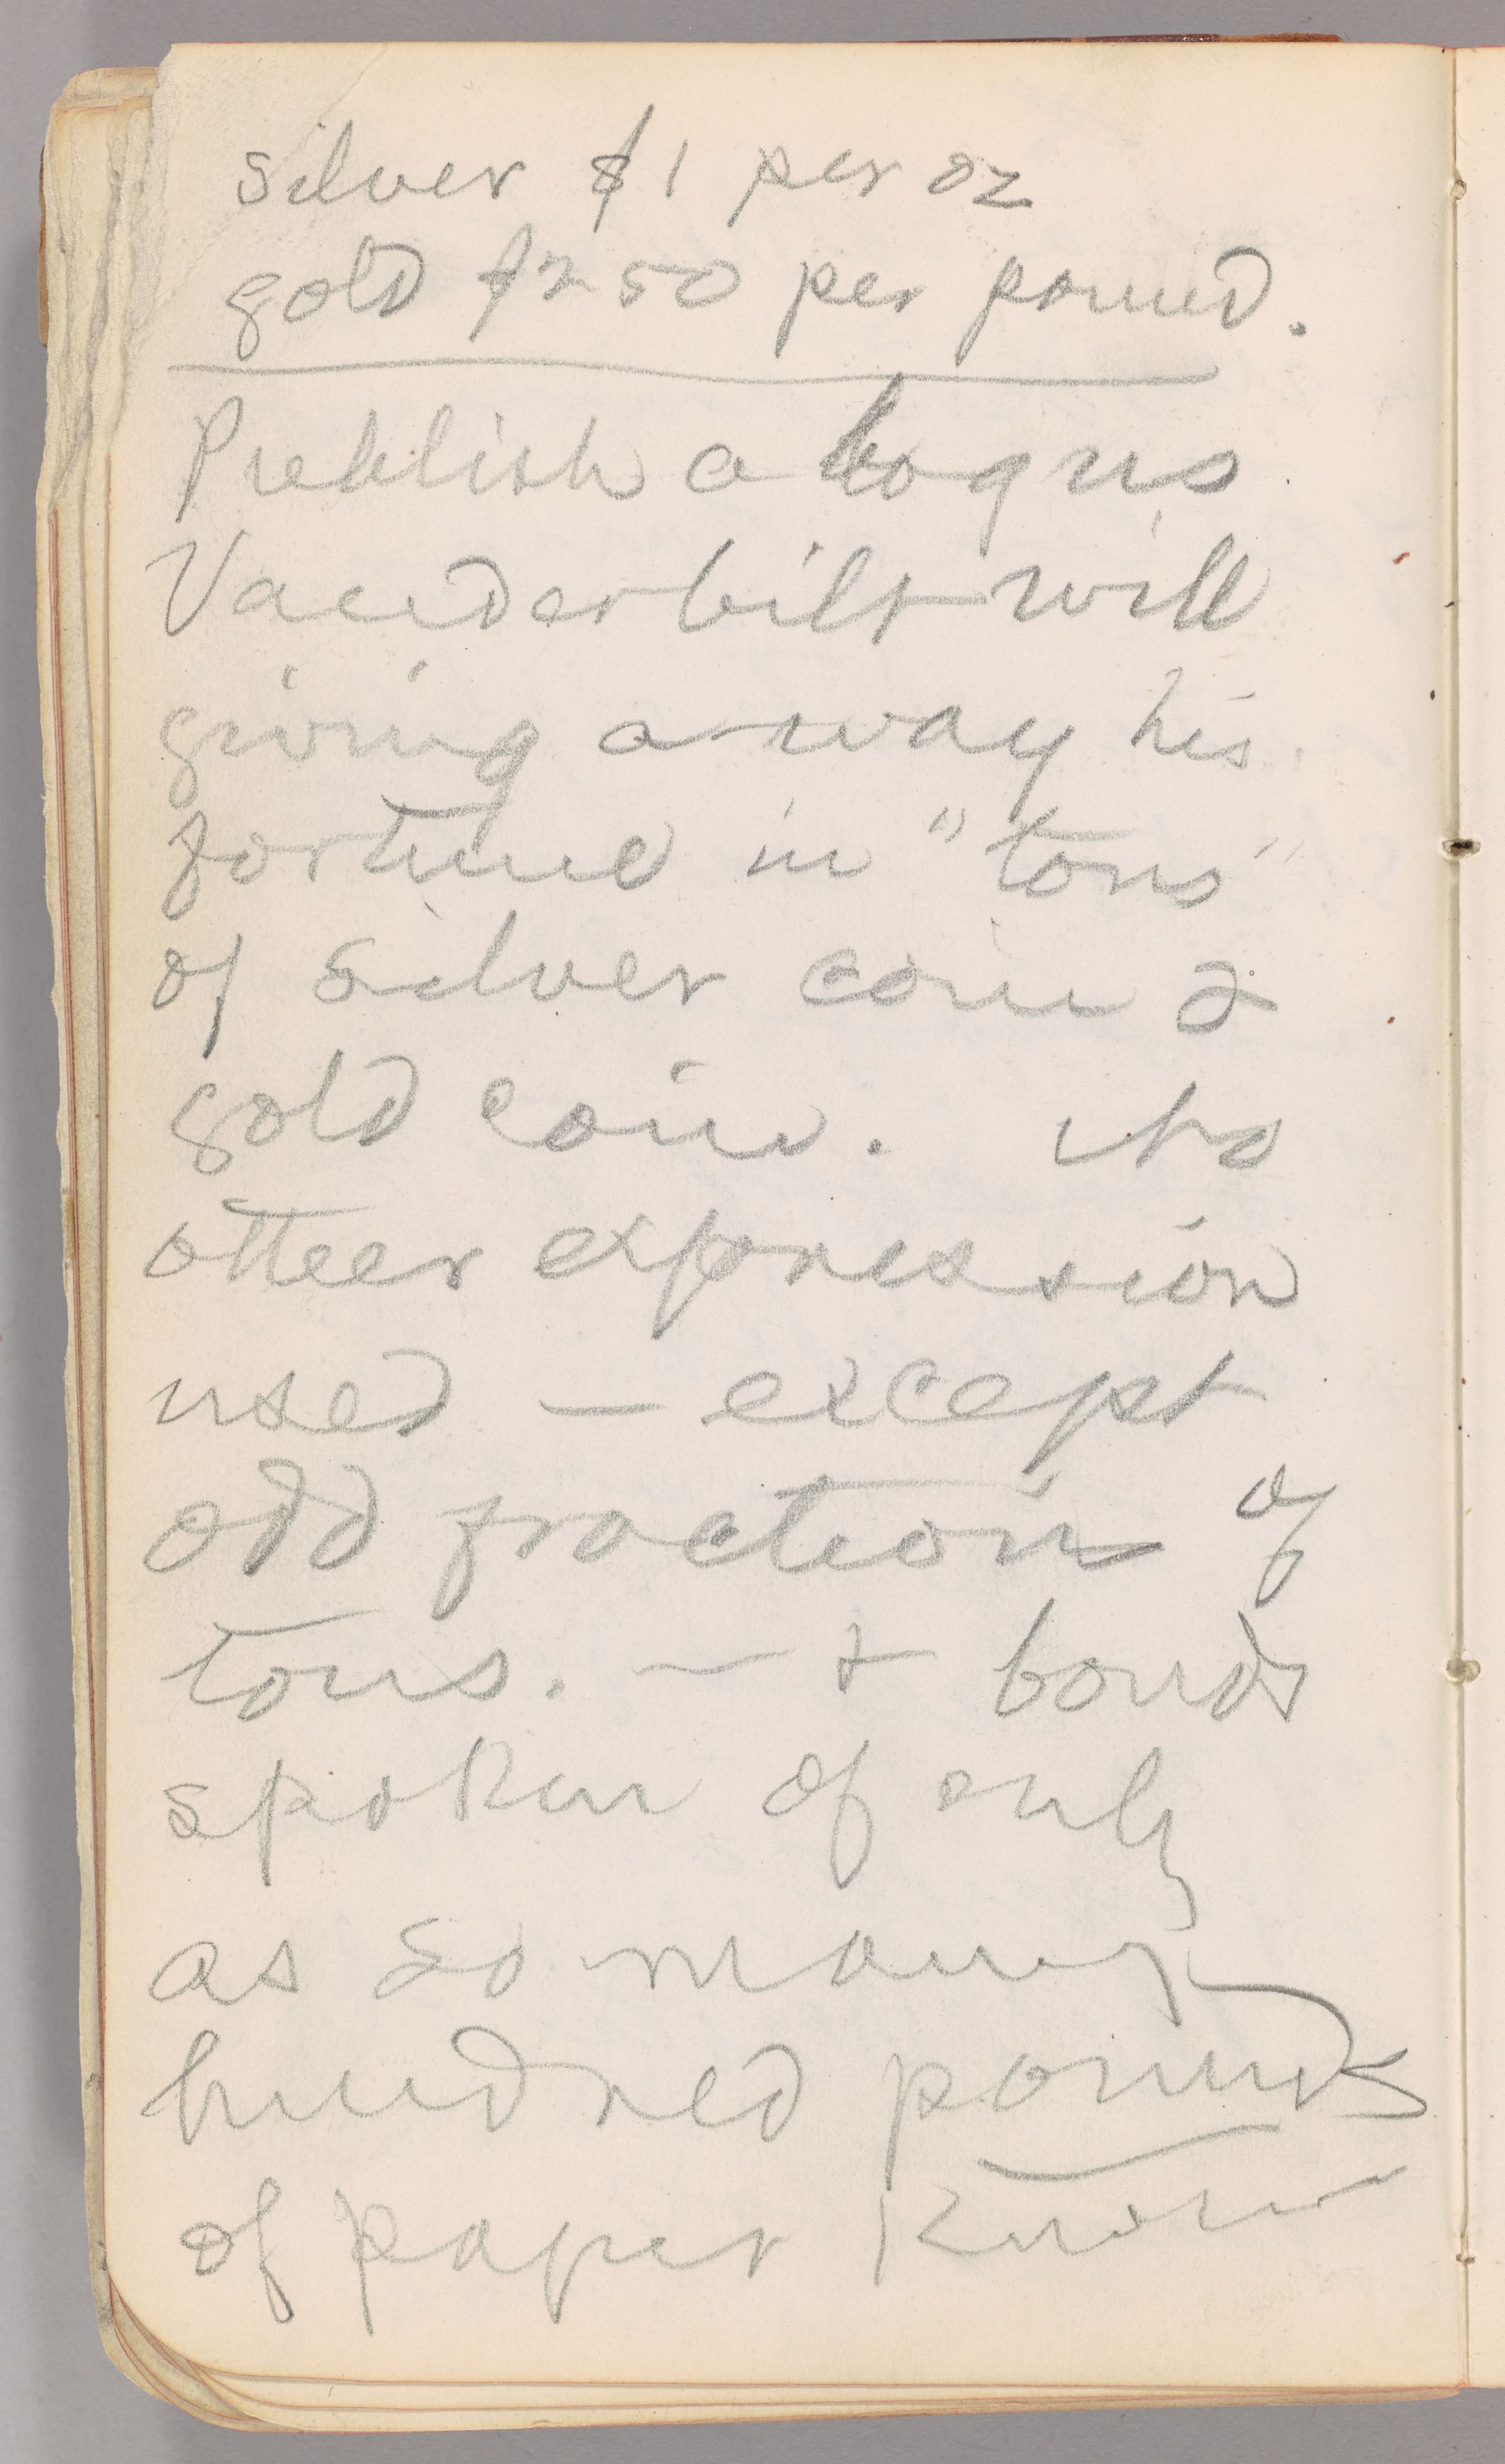 silver $1 per oz
gold $250 per pound.
Publish a bogus
Vanderbilt will
giving away his
fortune in "tons"
of silver coin &
gold coin. No
other expression
used — except
odd fraction of
tons. — & bonds
spoken of only
as so many
hundred pounds
of paper known